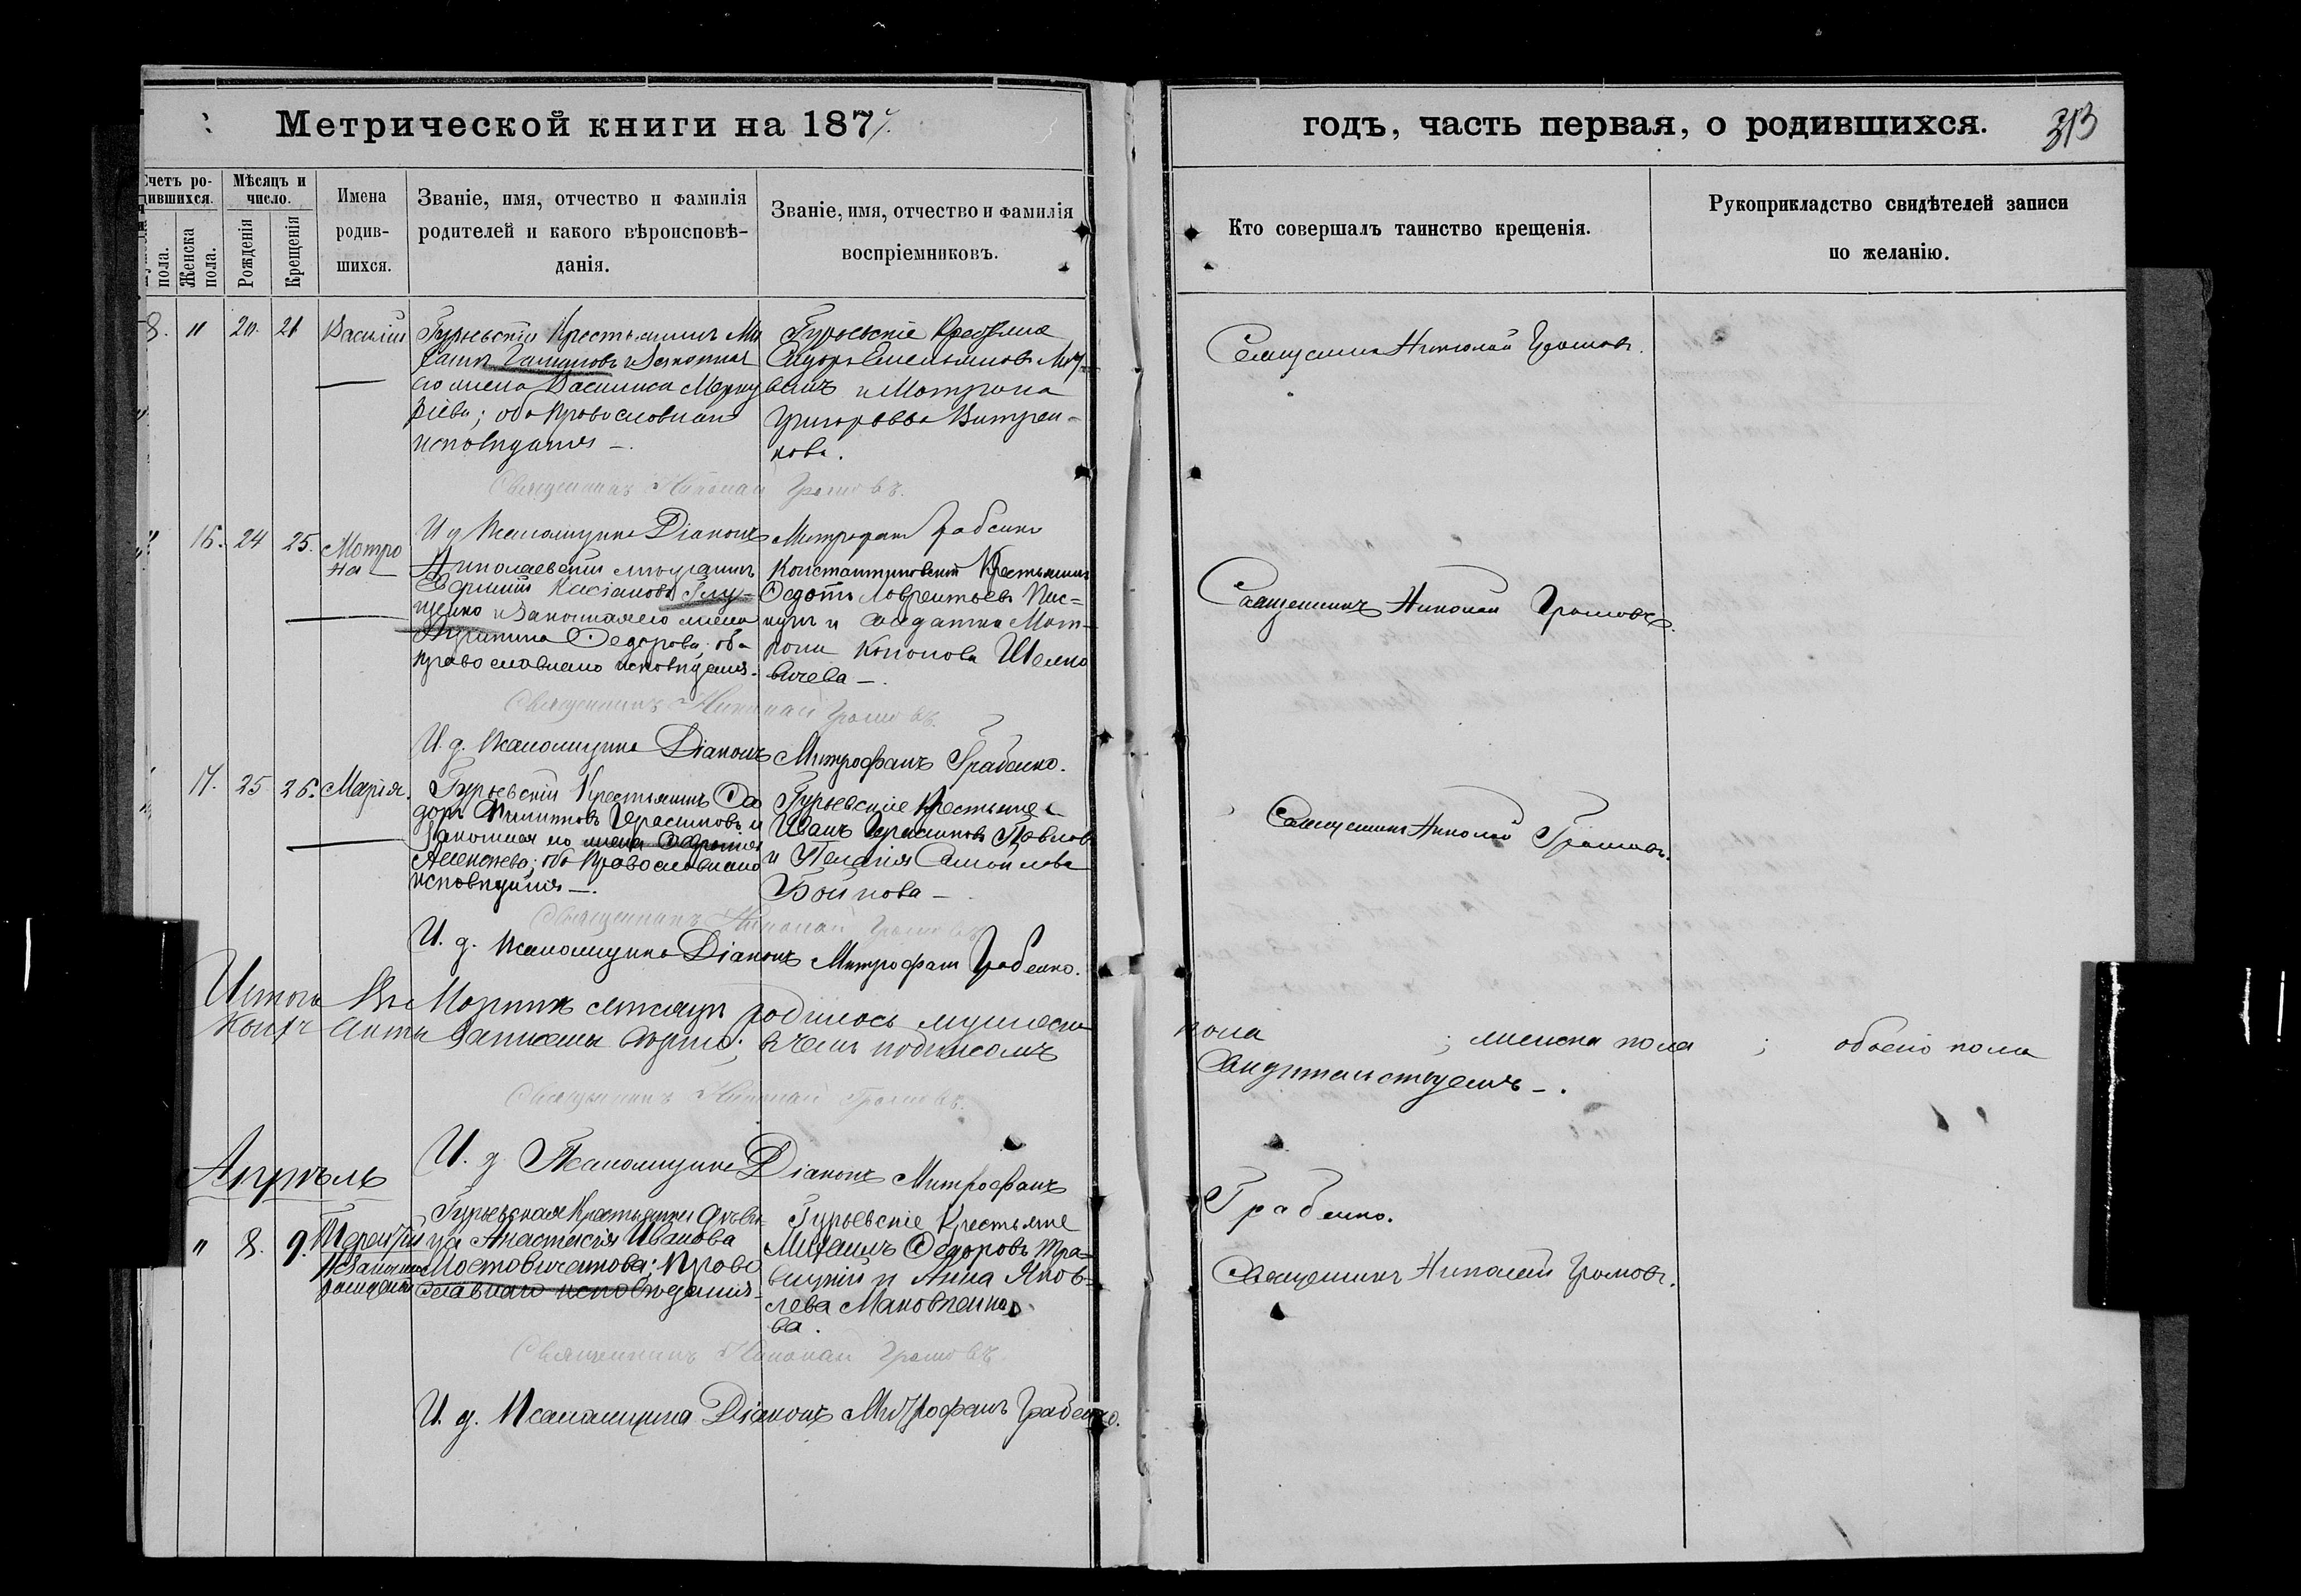 Метрической книги на 1877.
годъ, часть первая, о родившихся.
313
Счетъ родившихся.
Мѣсяцъ и число.
Имена родившихся.
Званіе, имя, отчество и фамилія родителей и какого вѣроисповѣданія.
Званіе, имя, отчество и фамилія воспріемниковъ.
Кто совершалъ таинство крещенія.
Рукоприкладство свидѣтелей записи по желанію.
пола.
Женска пола.
Рожденія
Крещенія
8. " 20. 21 Василій
Гурьевскій Крестьянинъ Ми
законная
его жена Василиса Мерку
ріева; оба Православнаго
исповѣданія —.
Гурьевскіе Крестьяне
Сидоръ Емельяновъ
и Матрона
Григорьева
кова.
Священникъ Николай Громовъ.
Священникъ Николай Громовъ.
16. 24 25. Матро
на
И д Псаломщика Діаконъ Митрофанъ Грабенко
Николаевскій мѣщанинъ
Касіановъ Глу-
щенко и законная его жена
Федорова; оба
православнаго исповѣданія.
Константиновскій Крестьянинъ
Федотъ Лаврентьевъ Пис-
кунъ и солдатка Мат-
рона Кононова Шелко
вичева —.
Священникъ Николай Громовъ.
Священникъ Николай Громовъ.
И. д. Псаломщика Діаконъ Митрофанъ Грабенко.
17. 25 26. Марія.
Гурьевскій Крестьянинъ Фе
доръ Филиповъ Герасимовъ и
законная его жена Евфросинія
Алексѣева; оба Православнаго
исповѣданія —.
Гурьевскіе Крестьяне
Иванъ Герасимовъ Павлов
и Пелагія Самойлова
Бойкова —
Священникъ Николай Громовъ.
Священникъ Николай Громовъ.
И. д. Псаломщика Діаконъ Митрофанъ Грабенко.
Итого Въ Мартѣ мѣсяцѣ родилось мужеска
пола ; женска пола ; обоего пола
Акты записаны вѣрно; въ чемъ подписомъ
свидѣтельствуемъ —.
Священникъ Николай Громовъ.
И. д. Псаломщика Діаконъ Митрофанъ
Грабенко.
Апрѣль
" 8. 9. Терентій
незаконно
рожденный
Гурьевская Крестьянка дѣви-
ца Анастасія Иванова
Мостовичникова; Право
славнаго исповѣданія
Гурьевскіе Крестьяне
Михаилъ Федоровъ Тра-
и Анна Яков-
лева Маковченко
ва.
Священникъ Николай Громовъ.
Священникъ Николай Громовъ.
И. д. Псаломщика Діаконъ Митрофанъ Грабенко.